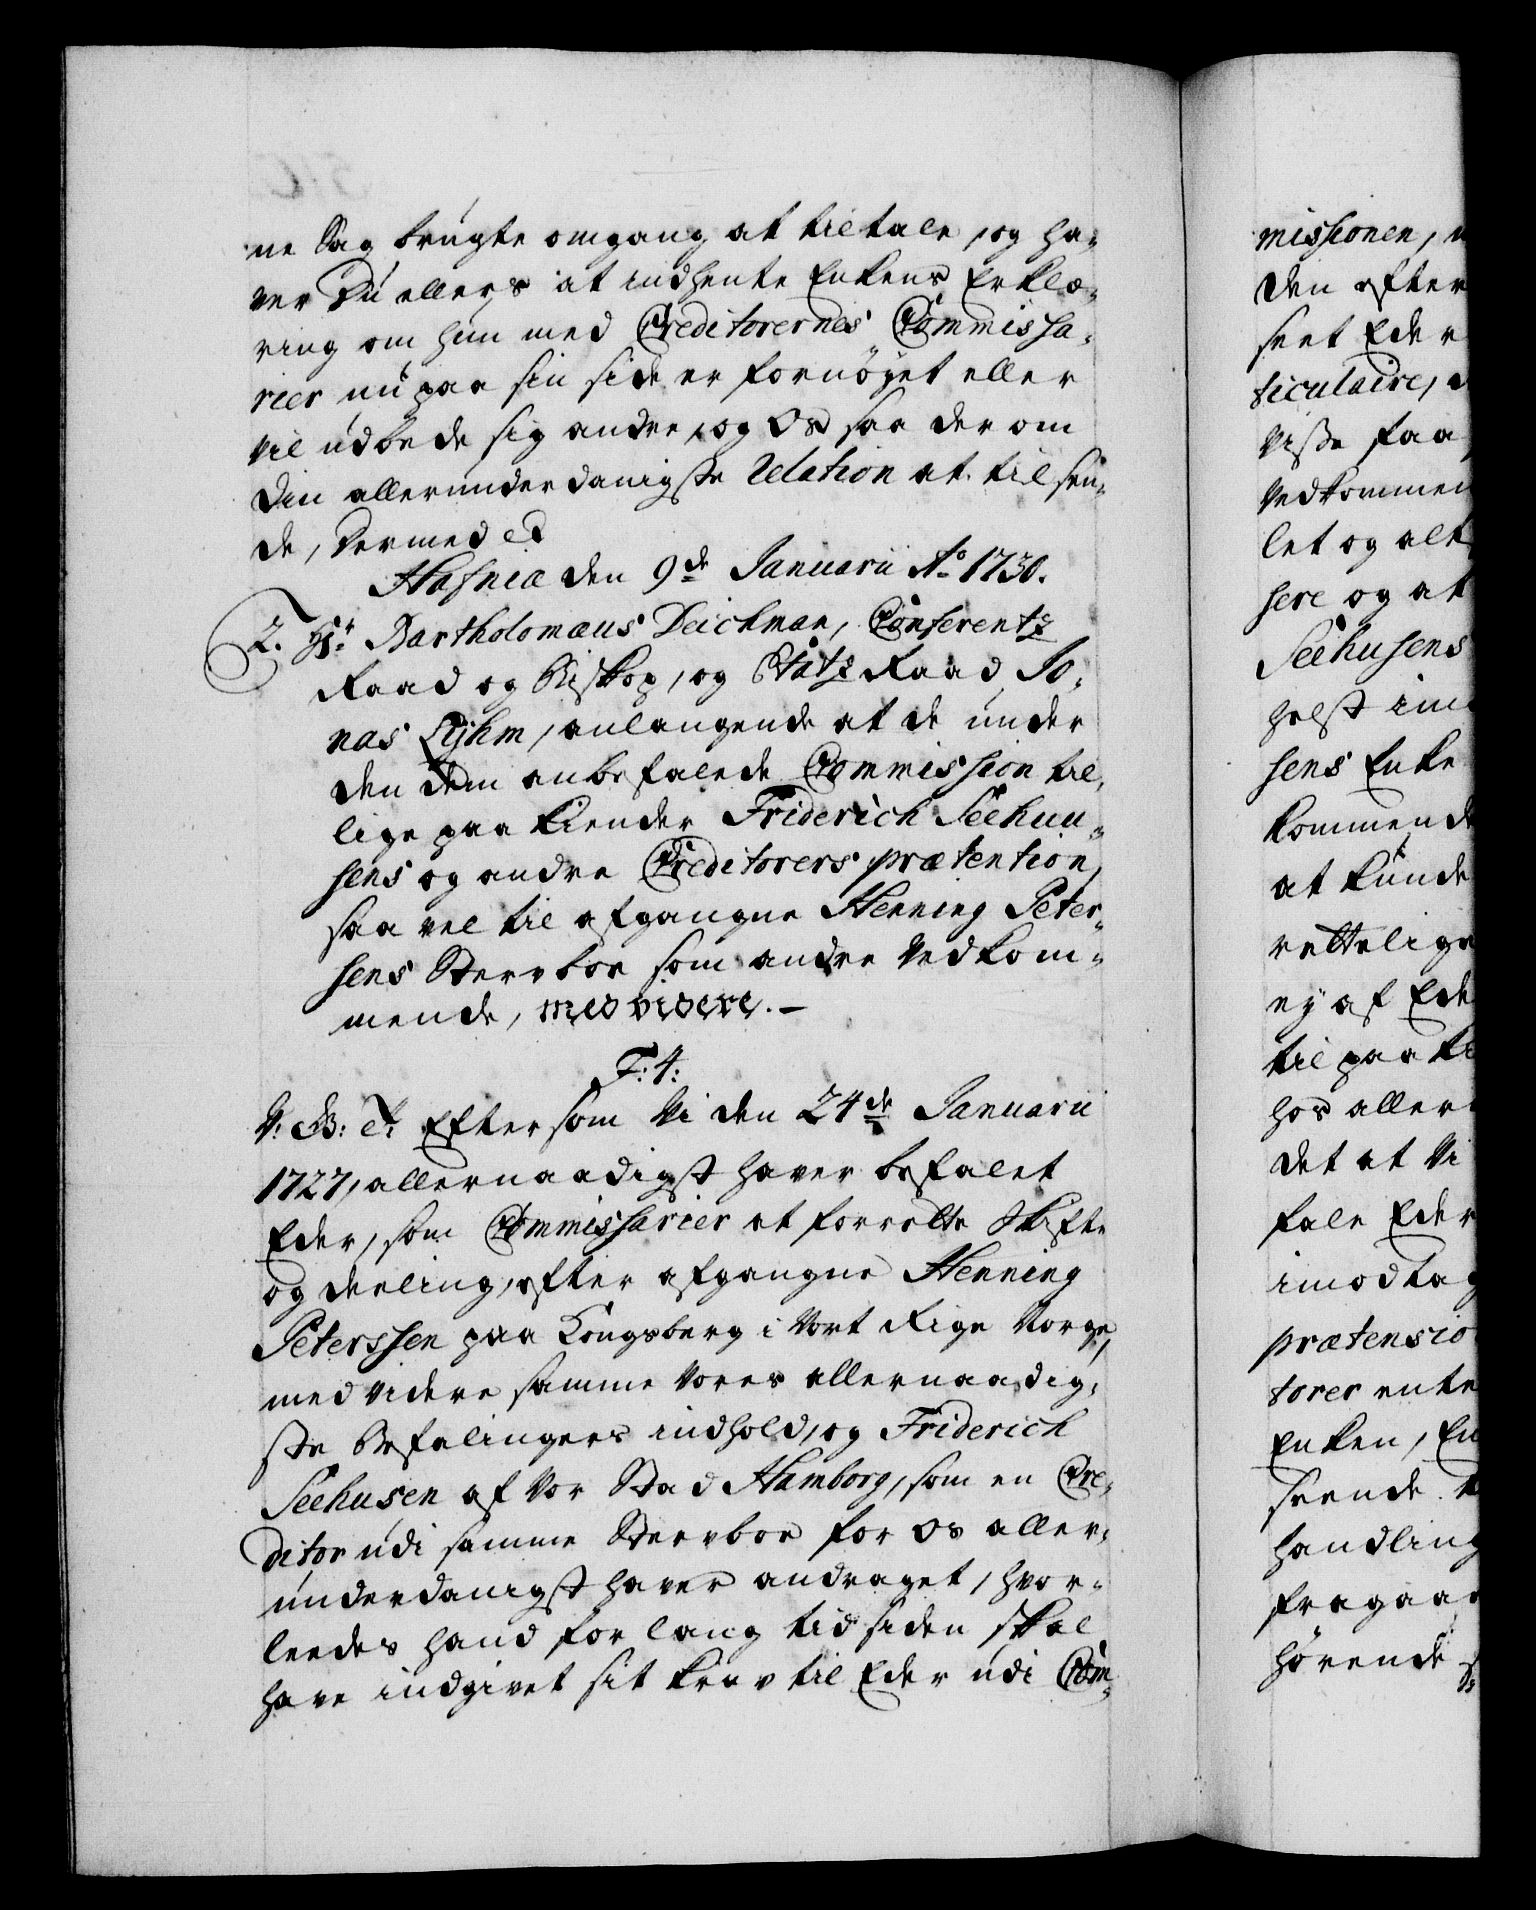 ne Sag brugte omgang at tiltale, og ha-
ver Du ellers at indhente Enkens Erklæ-
ring om hun med Creditorernes Commissa-
rier nu paa sin side er fornöyet eller
vil udbede sig andre, og Os saa der om
Din allerunderdanigste Relation at tilsen-
de, dermed &
Hafniæ den 9de Januarii Ao 1730.
2. Hr. Bartholomæus Deickman, Conferentz
Raad og Biskop, og Etatz Raad Jo-
nas Lyhm, anlangende at de under
den dem anbefalede Commission til-
lige paakiender Friderich Seehuu-
sens og andre Creditorers prætention,
saa vel til afgangne Henning Peter-
sens Sterboe som andre Vedkom-
mende, med videre. –
F: 4:
V: G: T: Eftersom Vi den 24de Januarii
1727, allernaadigst haver befalet
Eder, som Commissarier at forrette Skifte
og deeling, efter afgangne Henning
Peterssen paa Kongsberg i Vort Rige Norge,
med videre samme Vores allernaadig-
ste Befalingers indhold, og Friderich
Seehusen af Vor Stad Hamborg, som en Cre-
ditor udi samme Sterboe for Os aller-
underdanigst haver andraget, hvor-
leedes hand for lang tid siden skal
have indgivet sit krav til Eder udi Com-
missionen,
den efter
seet Eder
ticulaire,
visse faa
Vedkommen
let og alt
sere og at
Seehusens
helst im
sens Enke
kommende
at kunde
rettelige
ey af Ede
til paaki
hos aller
det at Vi
fale Eder
imodtag
prætensio
torer ente
Enken, En
seende
handling
fragaa
hörende